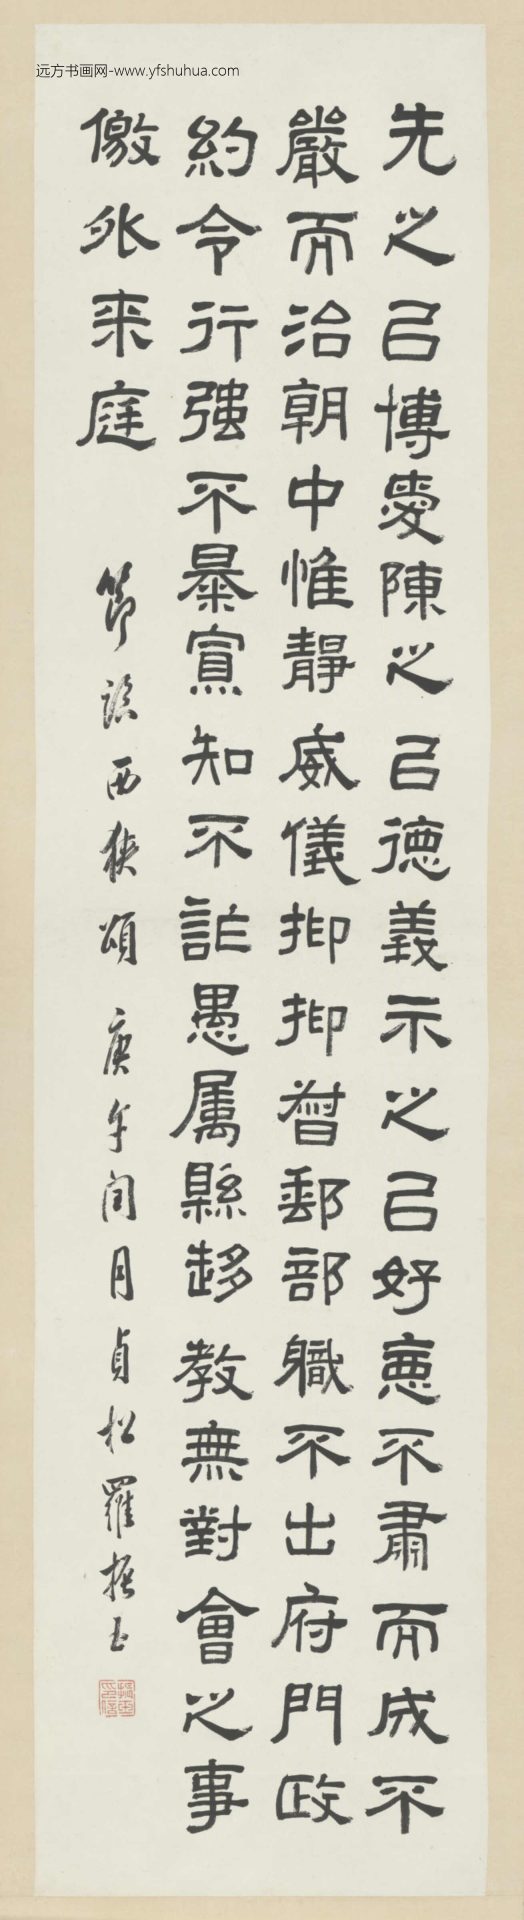 远方书画网-www.yfshuhua.com
先之㠯博愛陳之㠯德義示之㠯好惡不肅而成不
嚴而治朝中惟靜威儀抑抑督郵部職不出府門政
約令行强不暴寡知不詐愚属縣趍教無對會之事
儌外来庭
節臨西狹頌 庚午閏月貞松羅振玉
振玉印信